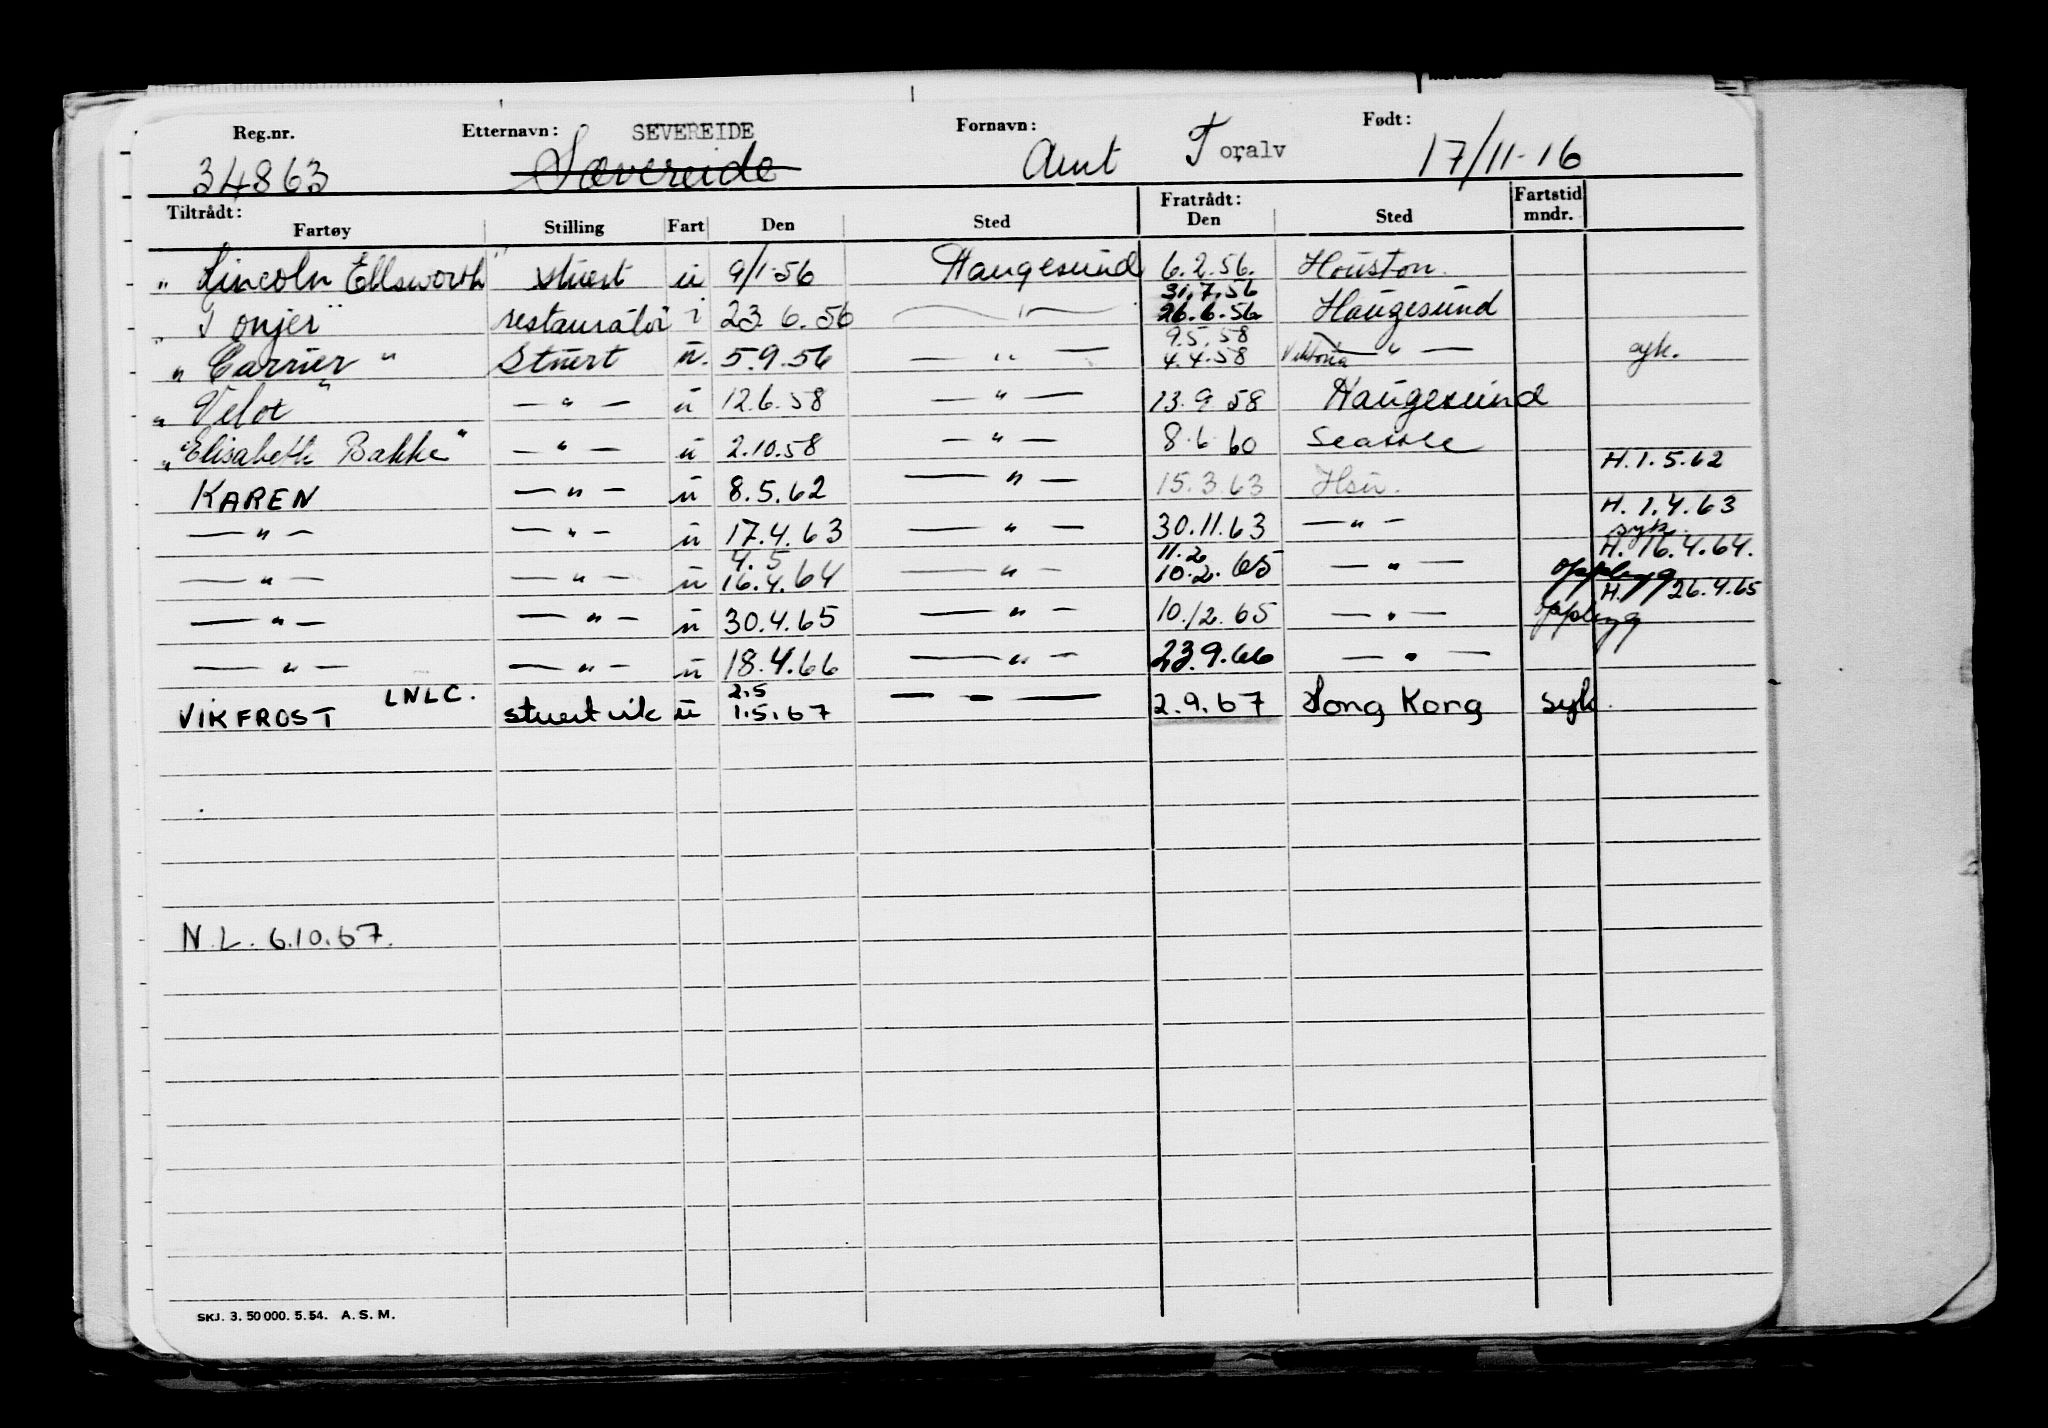 Reg.nr. Etternavn: SEVEREIDE Fornavn: Født:
34863 Sævereide Arnt Toralv 17/11-16
Tiltrådt: Fratrådt: Fartstid
Fartøy Stilling Fart Den Sted Den Sted mndr.
" Lincoln Ellsworth " Stuert u 9/1-56 Haugesund 6.2.56. Houston.
31.7.56
" Tonjer " restauratør i 23.6.56 — " — 26.6.56 Haugesund
9.5.58
" Carrier " Stuert u. 5.9.56 — " — 4.4.58 Viktoria — " — syk.
" Velox " — " — u 12.6.58 — " — 13.9.58 Haugesund
" Elisabeth Bakke " — " — u 2.10.58 — " — 8.6.60 Seattle
H. 1.5.62
KAREN — " — u 8.5.62 — " — 15.3.63 Hsu.
H. 1.4.63
— " — — " — u 17.4.63 — " — 30.11.63 — " — syk.
4.5 11.2 H. 16.4.64.
— " — — " — u 16.4.64 — " — 10.2.65 — " — opplagg
H. 26.4.65
— " — — " — u 30.4.65 — " — 10.12.65 — " — opplagg
— " — — " — u 18.4.66 — " — 23.9.66 — " —
LNLC. 2.5
VIKFROST stuert vik u 1.5.67 — " — 2.9.67 Hong Kong syk.
N.L. 6.10.67.
SKJ. 3. 50 000. 5. 54. A. S. M.